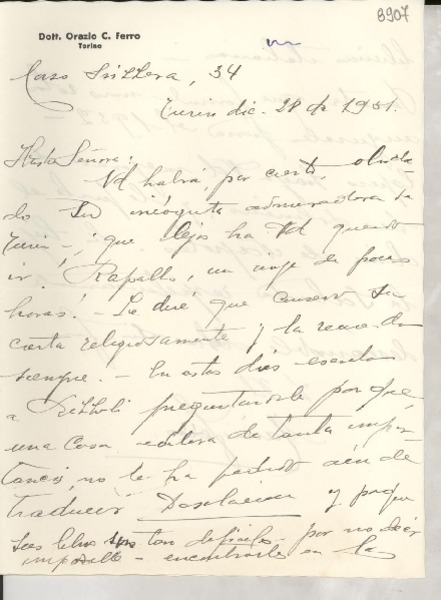 8907
Dott. Orazio C. Ferro
Torino
34
Turín dic. 28 de 1951.
Señora:
Vd habrá, por cierto, olvida
do su incógnita admiradora de
Turín -¡ que lejos ha Vd querido
ir! Rapallo, un viaje de pocas
horas! - Le diré que conservo su
carta religiosamente y la recuerdo
siempre. - En estos días escribo
a Rizzoli preguntándole por que
una Casa editora de tanta impor
tancia, no le ha pedido aún de
traducir Desolación y porque
sus libros son tan difíciles - por no decir
imposible - encontrarlos en la